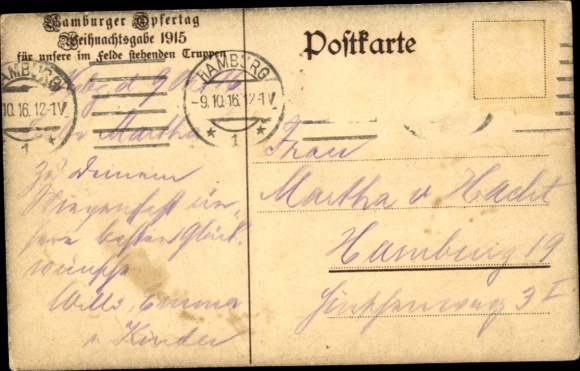 Hamburger Opfertag
Weihnachtsgabe 1915
für unsere im Felde stehenden Truppen
Postkarte
HAMBURG
10.16.12-1V.
1
HAMBURG
-9.10.16.12-1V.
* 1 *
d. 9. Okt.
Martha
Zu Deinem
Wiegenfest un-
sere besten Glück-
wünsche
Willi, Emma
u. Kinder
Frau
Martha v. Hacht
Hamburg 19
3 I